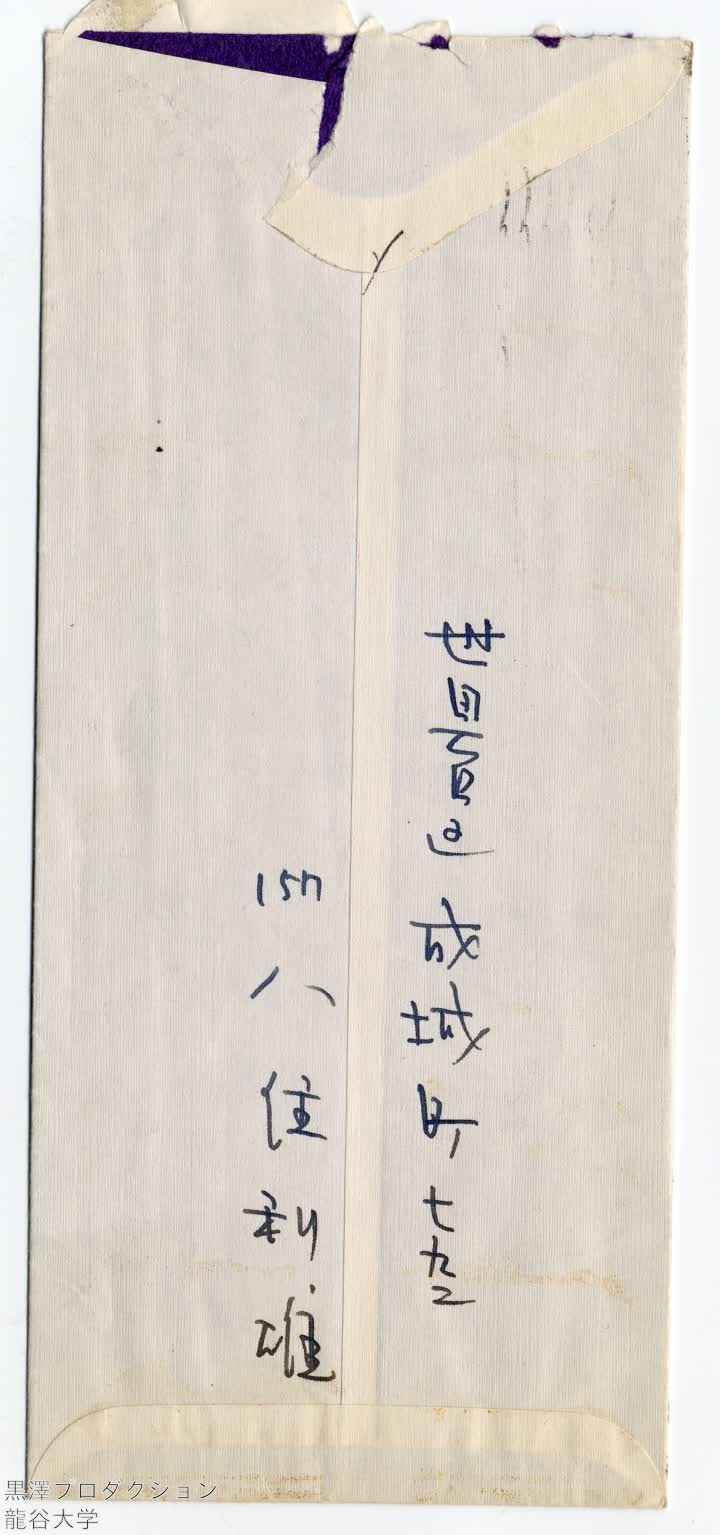 世田谷区成城町七九二
157
八住利雄
黒澤プロダクション
龍谷大学